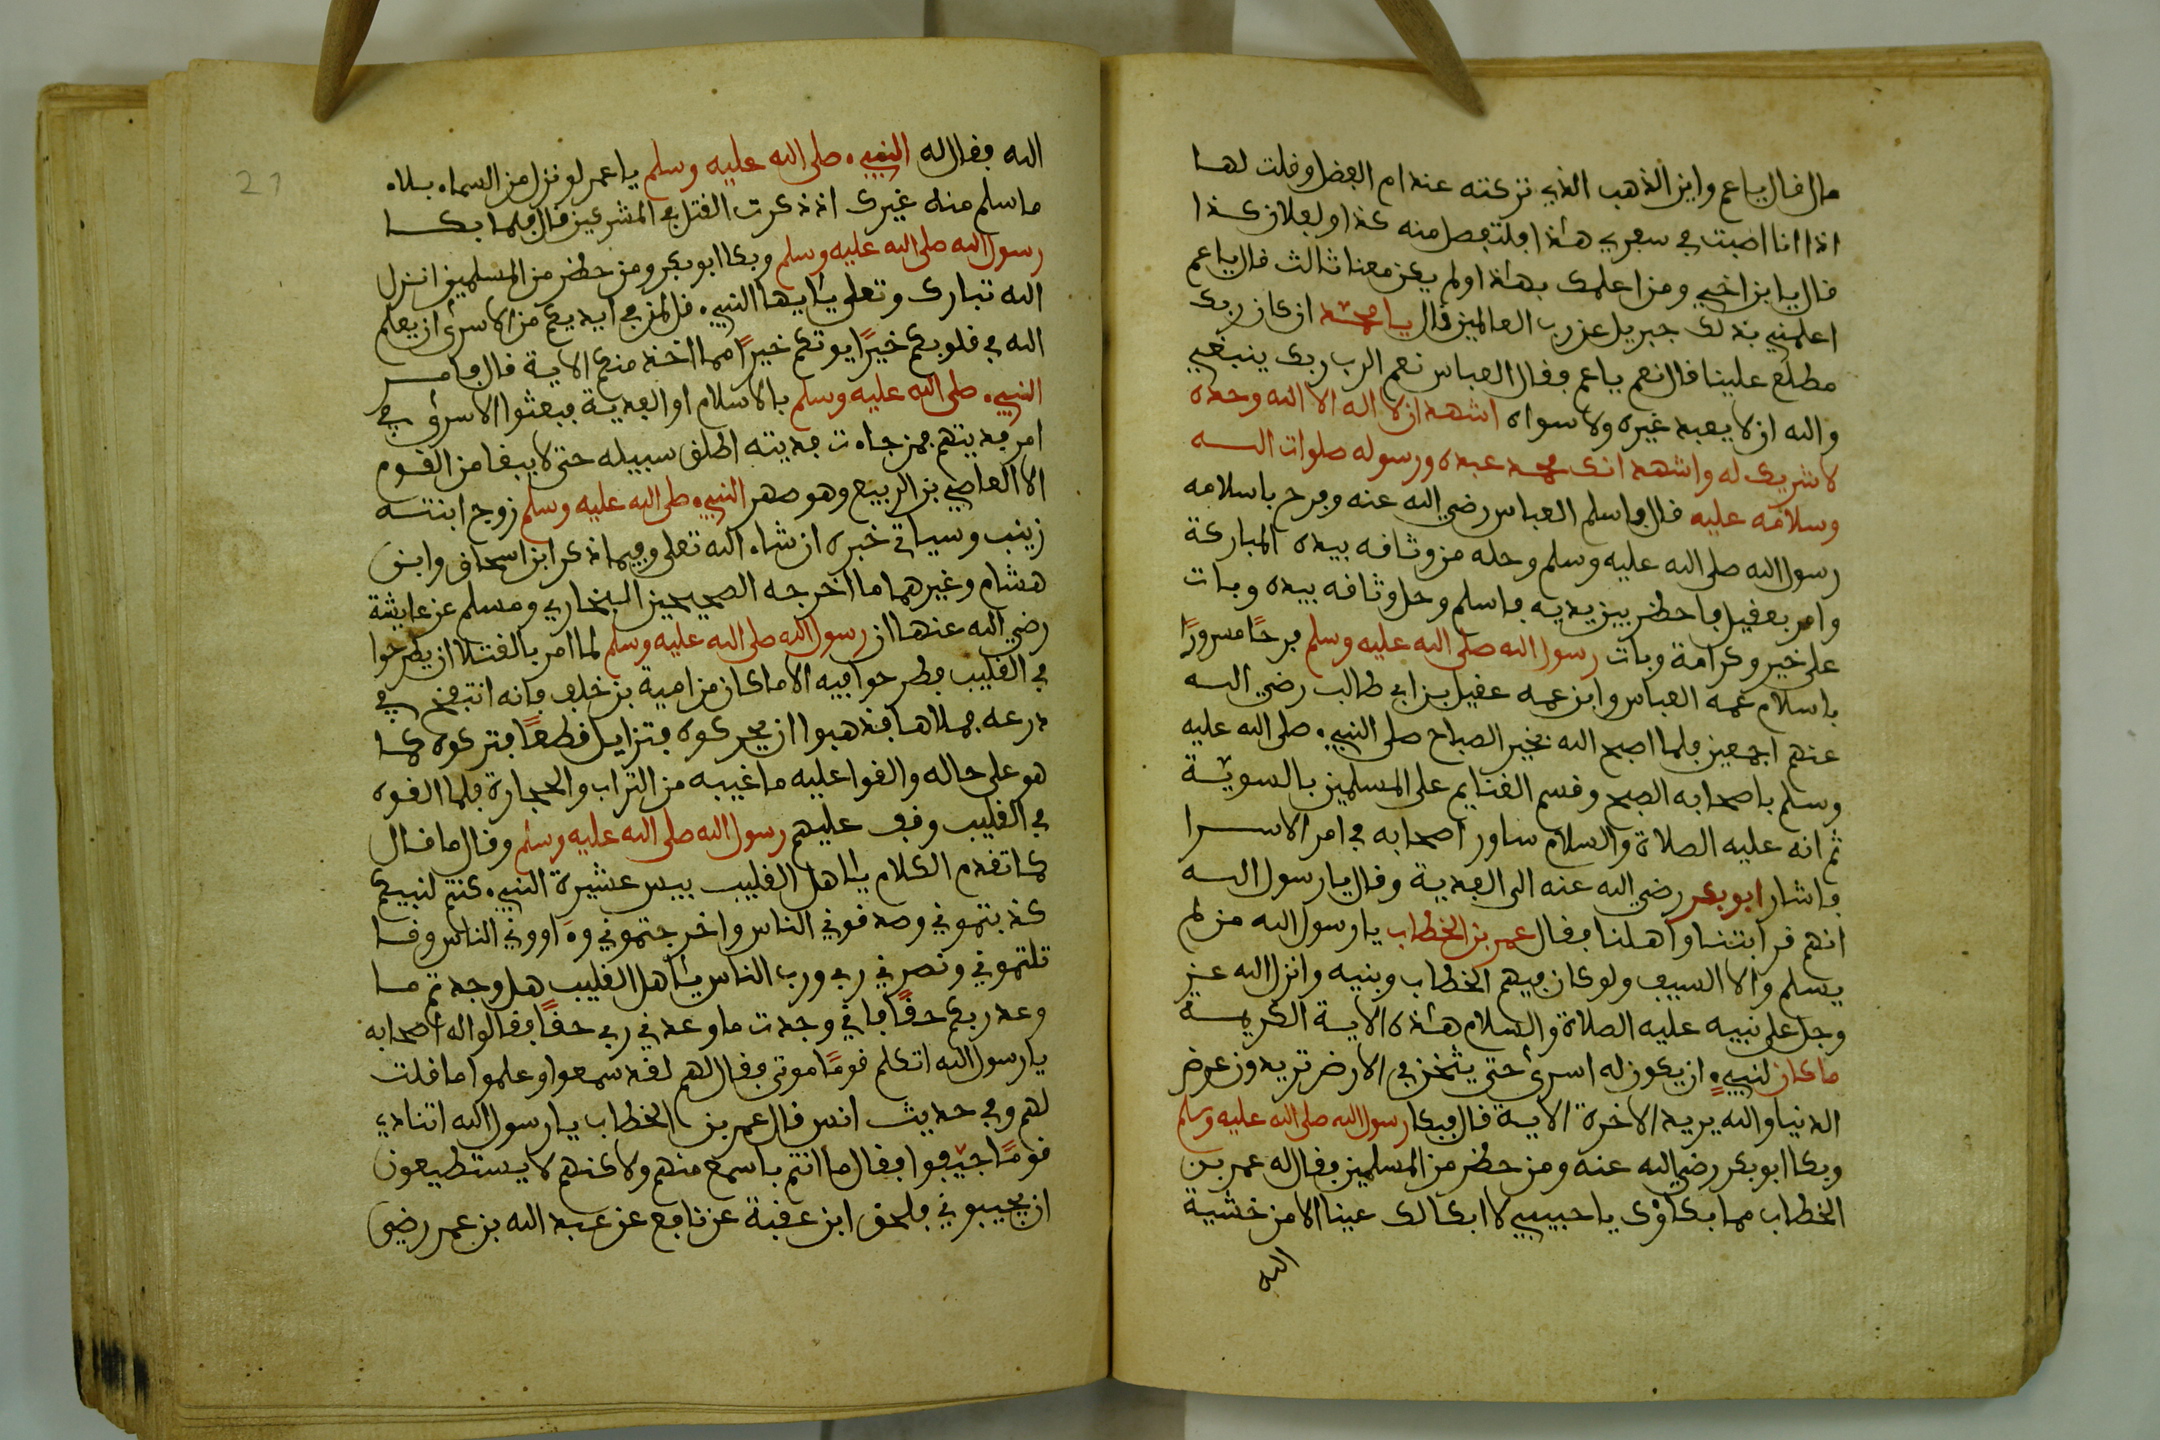 مال فال يا عم واين الذهب الذي تركته عند ام الفضل وقلت لها
اذا انا اصبت في سفري هذا فلتفصل منه كذا ولفلان كذا
قال يا ابن اخي ومن اعلمك بهذا ولم يكن معنا ثالث قال يا عم
اعلمني بذلك جبريل عن رب العالمين قال يا محمد ان كان ربك
مطلع علينا قال نعم يا عم فقال العباس نعم الرب ربك ينبغي
والله ان لا يعبد غيره ولا سواه اشهد ان لا اله الا الله وحده
لا شريك له واشهد انك محمد عبده ورسوله صلوات الله
وسلامه عليه قال فاسلم العباس رضي الله عنه وفرح باسلامه
رسول الله صلى الله عليه وسلم وحله من وثاقه بيده المباركة
وامر بعقيل فاحظر بين يديه فاسلم وحل وثاقه بيده وبات
على خير وكرامة وبات رسول الله صلى الله عليه وسلم فرحًا مسرورًا
باسلام عمه العباس وابن عمه عقيل بن ابي طالب رضي الله
عنهم اجمعين فلما اصبح الله بخير الصباح صلى النبيء صلى الله عليه
وسلم باصحابه الصبح وقسم الغنايم على المسلمين بالسويّة
ثم انه عليه الصلاة والسلام ساور اصحابه في امر الاسرا
فاشار ابو بكر رضي الله عنه الى الفدية وقال يا رسول الله
انهم قرابتنا واهلنا فقال عمر بن الخطاب يا رسول الله من لم
يسلم والا السيف ولو كان فيهم الخطاب وبنيه وانزل الله عز
وجل على نبيه عليه الصلاة والسلام هذه الاية الكريمة
ما كان لنبيء ان يكون له اسرى حتى يثخن في الارض تريدون عرض
الدنيا والله يريد الاخرة الاية قال فبكا رسول الله صلى الله عليه وسلم
وبكا ابو بكر رضي الله عنه ومن حظر من المسلمين فقال له عمر بن
الخطاب مما بكاؤك يا حبيبي لا ابكا لك عينا الا من خشية
الله
الله فقال له النبيء صلى الله عليه وسلم يا عمر لو نزل من السماء بلاء
ما سلم منه غيرك اذ ذكرت القتل في المشركين قال فلما بكا
رسول الله صلى الله عليه وسلم وبكا ابو بكر ومن حظر من المسلمين انزل
الله تبارك وتعلى يا ايها النبيء قل لمن في ايديكم من الاسرى ان يعلم
الله في قلوبكم خيرًا يوتكم خيرًا مما اخذ منكم الاية قال فامر
النبيء صلى الله عليه وسلم بالاسلام او الفدية فبعثوا الاسرى في
امر فديتهم فمن جاءت فديته اطلق سبيله حتى لا يبقا من القوم
الا العاصي بن الربيع وهو صهر النبيء صلى الله عليه وسلم زوج ابنته
زينب وسياتي خبره ان شاء الله تعلى وفيما ذكر ابن اسحاق وابن
هشام وغيرهما ما اخرجه الصحيحين البخاري ومسلم عن عايشة
رضي الله عنها ان رسول الله صلى الله عليه وسلم لما امر بالقتلا ان يطرحوا
في القليب فطرحوا فيه الا ما كان من امية بن خلف فانه انتفخ في
درعه فملاها فذهبوا ان يحركوه فتزايل قطعًا فتركوه كما
هو على حاله والقوا عليه ما غيبه من التراب والحجارة فلما القوه
في القليب وقف عليهم رسول الله صلى الله عليه وسلم وقال ما قال
كما تقدم الكلام يا اهل القليب بيس عشيرة النبيء كنتم لنبيكم
كذبتموني وصدقوني الناس واخرجتموني وءاووني الناس وقا
تلتموني ونصرني ربي ورب الناس يا اهل القليب هل وجدتم ما
وعد ربكم حقًا فاني وجدت ما وعدني ربي حقًا فقالوا له اصحابه
يا رسول الله اتكلم قومًا موتى فقال لهم لقد سمعوا وعلموا ما قلت
لهم وفي حديث انس قال عمر بن الخطاب يا رسول الله اتنادي
قومًا جيّفوا فقال ما انتم باسمع منهم ولاكنهم لا يستطيعون
ان يجيبوني فلحق ابن عقبة عن نافع عن عبد الله بن عمر رضي
21